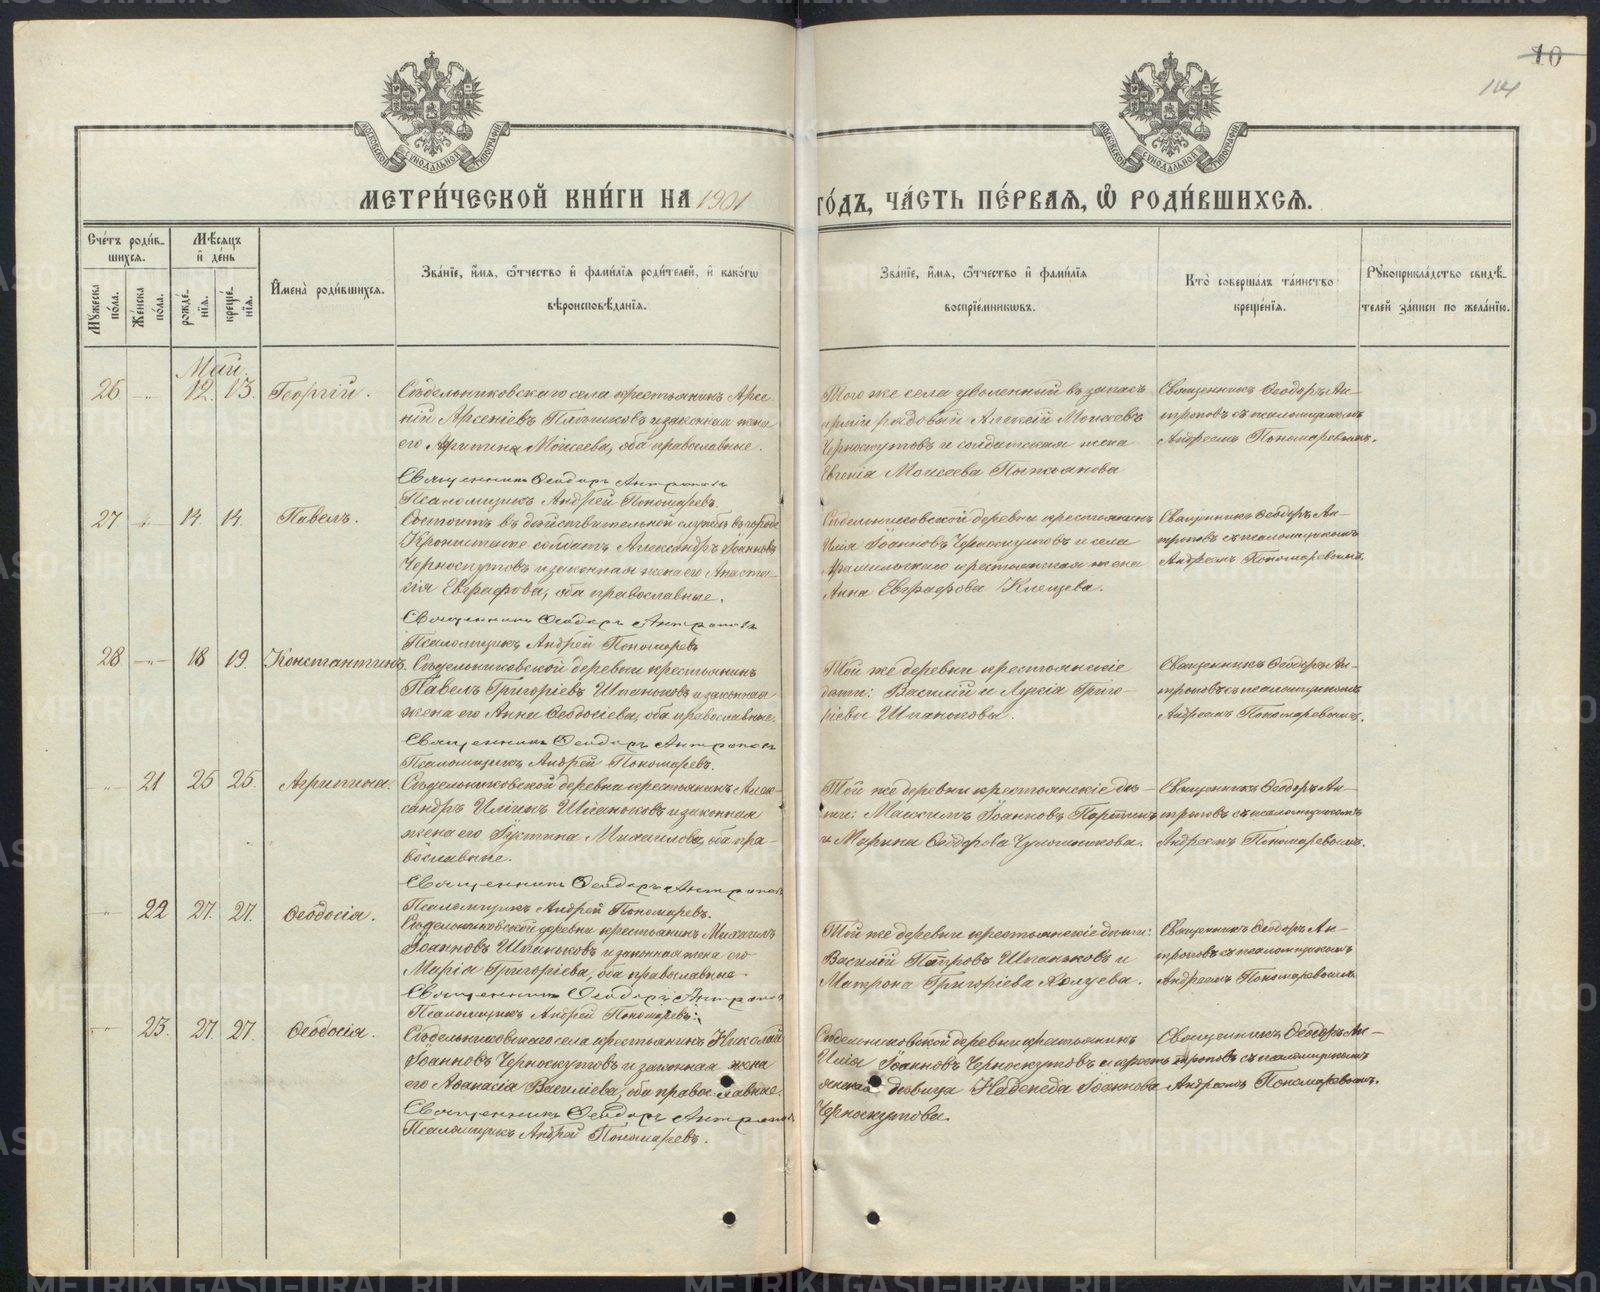 10
114
МОСКОВСКОЙ СѴНОДАЛЬНОЙ ТИПОГРАФІИ
МОСКОВСКОЙ СѴНОДАЛЬНОЙ ТИПОГРАФІИ
МЕТРИ́ЧЕСКОЙ КНИ́ГИ НА 1901 ГО́ДЪ, ЧА́СТЬ ПЕ́РВАѦ, Ѡ РОДИ́ВШИХСѦ.
Сче́тъ роди́в-
шихсѧ.
Мꙋжеска по́ла.
Же́нска по́ла.
Мѣ́сѧцъ
и҆ де́нь
рожде́-
нїѧ.
креще́-
нїѧ.
И҆мена̀ роди́вшихсѧ.
Зва́нїе, и҆́мѧ, ѻ҆́тчество и҆ фами́лїѧ роди́телей, и҆ како́гѡ
вѣроисповѣ́данїѧ.
Зва́нїе, и҆́мѧ, ѻ҆́тчество и҆ фами́лїѧ
воспрїе́мникѡвъ.
Кто̀ соверша́лъ та́инство
креще́нїѧ.
Рꙋкоприкла́дство свидѣ́-
телей за́писи по жела́нїю.
Май.
26 -„- 12. 13. Георгій.
Сѣдельниковскаго села крестьянинъ Арсе-
ній Арсеніевъ Плотниковъ и законная жена
его Моисеева, оба православные.
Священникъ Ѳеодоръ Антроповъ
Псаломщикъ Андрей Пономаревъ.
Того же села уволенный въ запасъ
арміи рядовый Алексій Моисеевъ
Черноскутовъ и солдатская жена
Евгенія Моисеева Пьянкова
Священникъ Ѳеодоръ Ан-
троповъ съ псаломщикомъ
Андреемъ Пономаревымъ.
27 -„- 14. 14. Павелъ.
Состоитъ въ действительной службѣ въ городѣ
Кронштатѣ солдатъ Александръ Іоанновъ
Черноскутовъ и законная жена его Анаста-
сія Евграфова, оба православные.
Священникъ Ѳеодоръ Антроповъ
Псаломщикъ Андрей Пономаревъ
Сѣдельниковской деревни крестьянинъ
Илія Іоанновъ Черноскутовъ и села
Арамильскаго крестьянская жена
Анна Евграфова Клещева.
Священникъ Ѳеодоръ Ан-
троповъ съ псаломщикомъ
Андреемъ Пономаревымъ.
28 -„- 18 19. Константинъ.
Сѣдельниковской деревни крестьянинъ
Павелъ Григоріевъ Шпаньковъ и законная
жена его Анна Ѳеодосіева, оба православные.
Священникъ Ѳеодоръ Антроповъ
Псаломщикъ Андрей Пономаревъ.
Той же деревни крестьянскіе
дѣти: Василій и Лукія Григо-
ріевы Шпаньковы.
Священникъ Ѳеодоръ Ан-
троповъ съ псаломщикомъ
Андреемъ Пономаревымъ.
-„- 21 25 25. Агрипина.
Сѣдельниковской деревни крестьянинъ Алек-
сандръ Илiинъ Шпаньковъ и законная
жена его Іустина Михаилова, оба пра-
вославные.
Священникъ Ѳеодоръ Антроповъ
Псаломщикъ Андрей Пономаревъ.
Той же деревни крестьянскіе дѣ-
ти: Максимъ Іоанновъ Портинъ
и Марина Ѳеодорова
Священникъ Ѳеодоръ Ан-
троповъ съ псаломщикомъ
Андреемъ Пономаревымъ.
-„- 22 27. 27. Ѳеодосія.
Сѣдельниковской деревни крестьянинъ Михаилъ
Іоанновъ Шпаньковъ и законная жена его
Марія Григоріева, оба православные.
Священникъ Ѳеодоръ Антроповъ
Псаломщикъ Андрей Пономаревъ.
Той же деревни крестьянскіе дѣти:
Василій Петровъ Шпаньковъ и
Матрона Григоріева Холуева.
Священникъ Ѳеодоръ Ан-
троповъ съ псаломщикомъ
Андреемъ Пономаревымъ
-„- 23. 27. 27. Ѳеодосія.
Сѣдельниковскаго села крестьянинъ Николай
Іоанновъ Черноскутовъ и законная жена
его Аѳанасія Василіева, оба православные.
Священникъ Ѳеодоръ Антроповъ
Псаломщикъ Андрей Пономаревъ.
Сѣдельниковской деревни крестьянинъ
Илія Іоанновъ Черноскутовъ и кресть-
янская дѣвица Надежда Іоаннова
Черноскутова.
Священникъ Ѳеодоръ Ан-
троповъ съ псаломщикомъ
Андреемъ Пономаревымъ.
METRIKI.GASO-URAL.RU